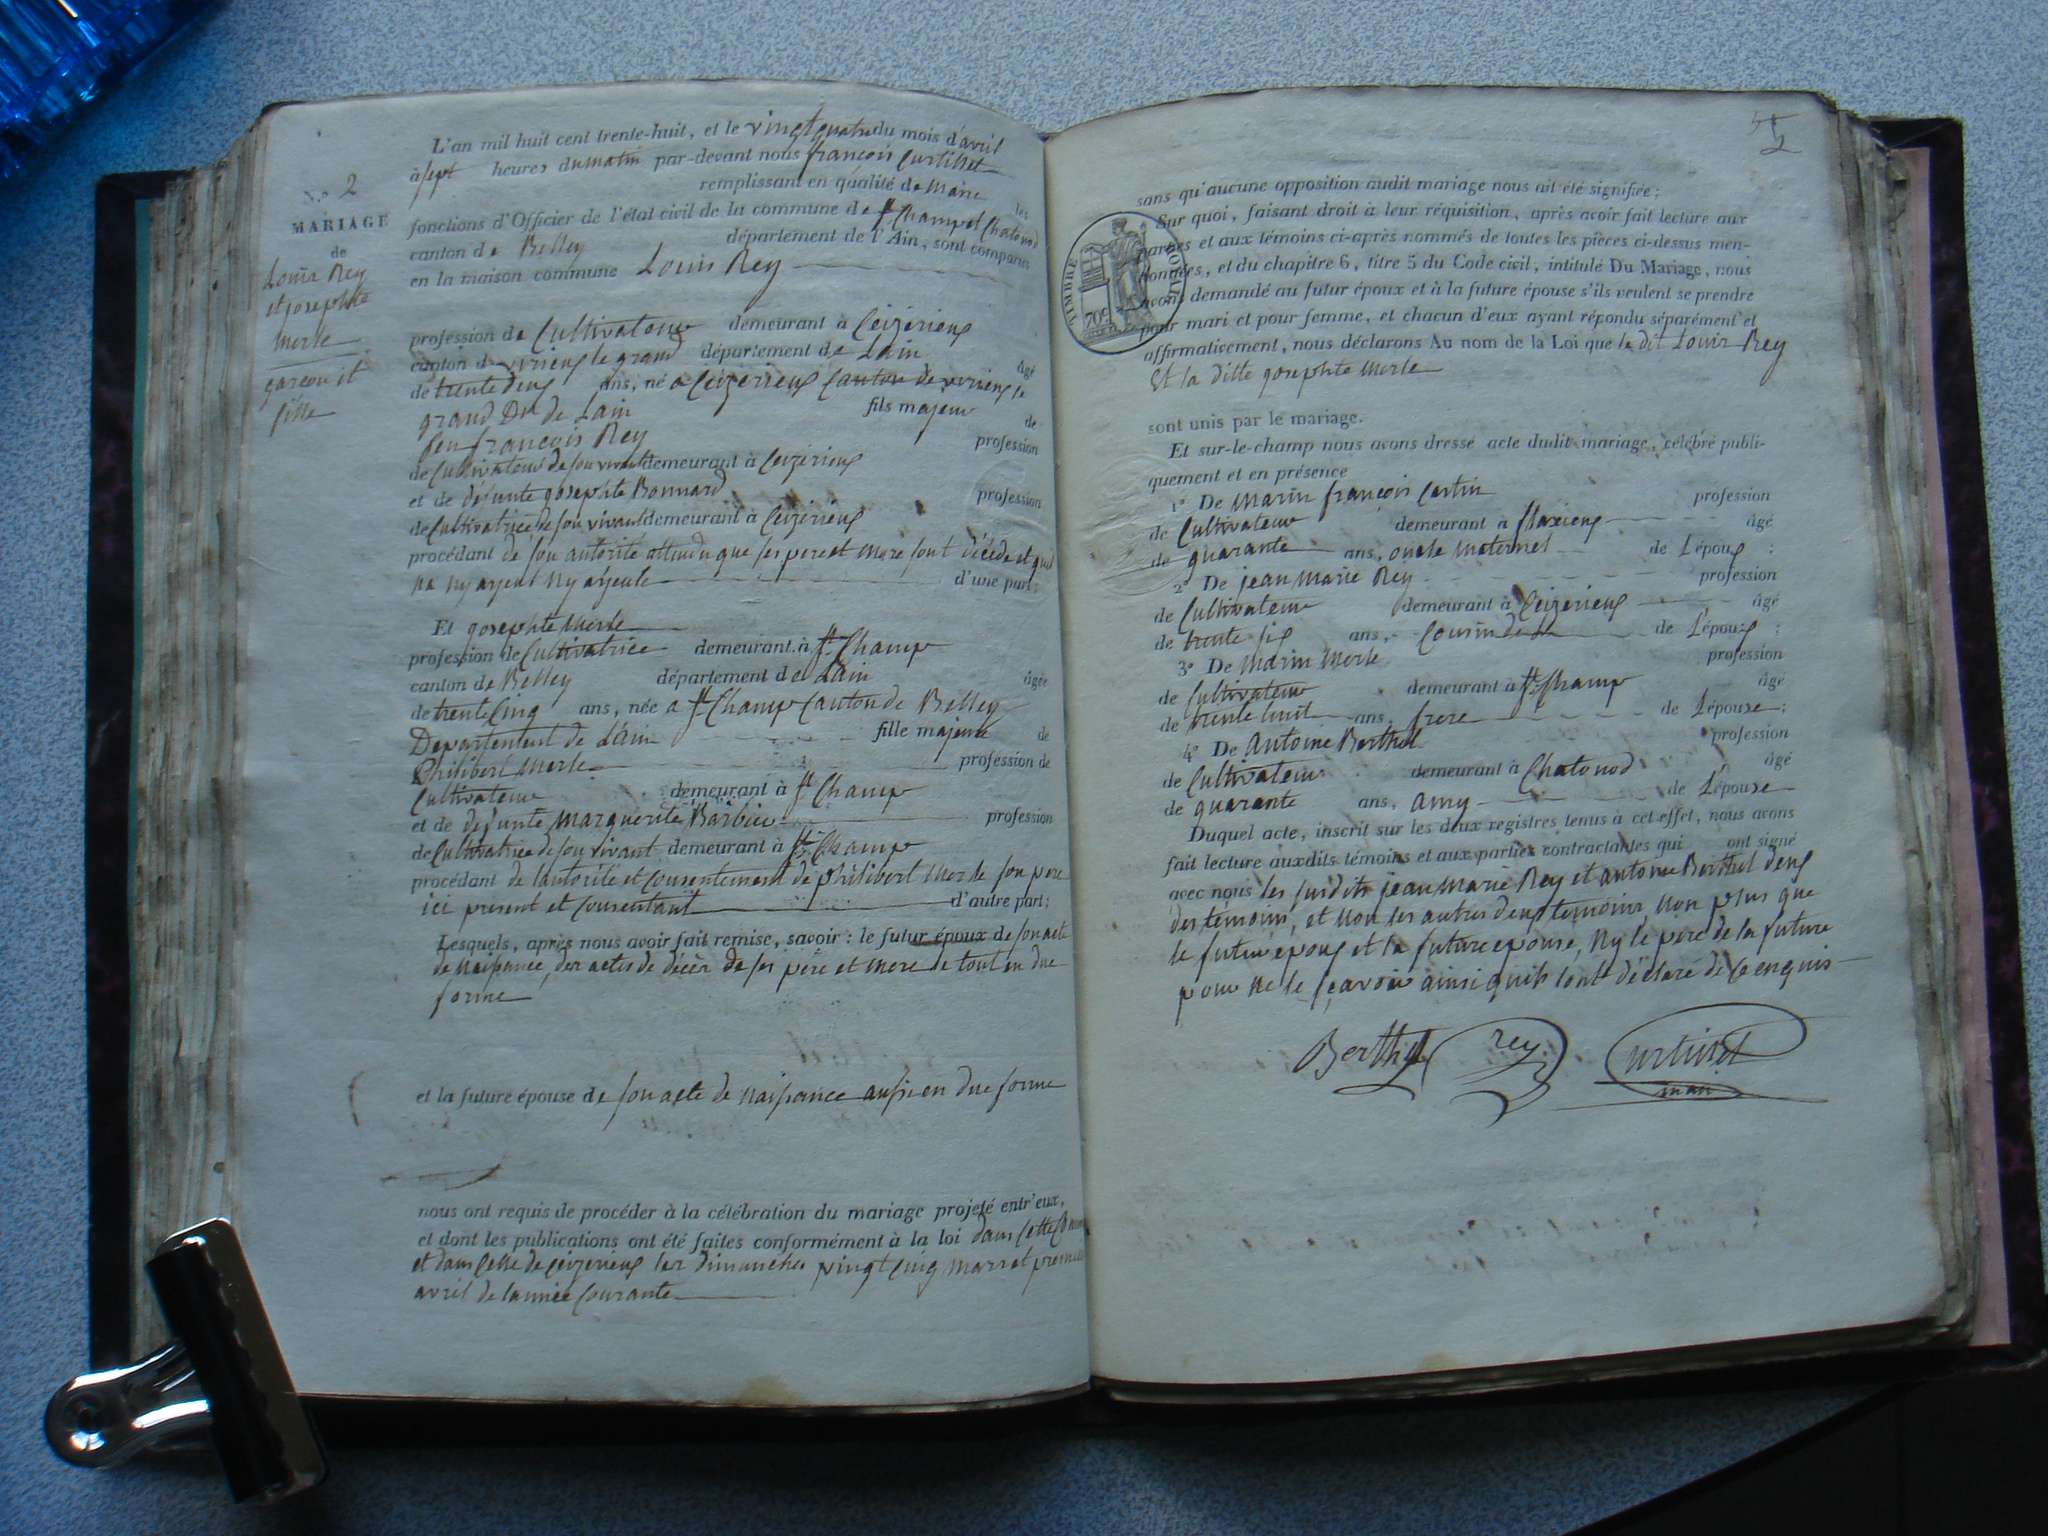 N.o 2
MARIAGE
de
Louis Rey
et josephte
merle
garcon et
fille
L'an mil huit cent trente-huit, et le vingt quatre du mois d'avril
à sept heures du matin par-devant nous françois Curtillet
remplissant en qualité de Maire les
fonctions d'Officier de l'état civil de la commune de St Champ et Chatonod
canton de Belley département de l'Ain, sont comparus
en la maison commune Louis Rey
profession de Cultivateur demeurant à Ceizerieux
canton de virieux le grand département de Lain âgé
de trente deux ans, né a Ceizerieux Canton de virieux le
grand Dt de Lain fils majeur de
feu françois Rey profession
de Cultivateur de son vivant demeurant à Ceizerieux
et de défunte josephte Bonnard profession
de Cultivatrice de son vivant demeurant à Ceizerieux
procédant de son autorité attendu que ses pere et mere sont décédé et quil
na ny ayeul ny ayeule d'une part;
Et josephte Merle
profession de Cultivatrice demeurant à St Champ
canton de Belley département de Lain âgée
de trente Cinq ans, née a St Champ Canton de Belley
Departement de Lain fille majeure de
Philibert Merle profession de
Cultivateur demeurant à St Champ
et de defunte Marguerite Barbier profession
de Cultivatrice de son vivant demeurant à St Champ
procédant de lautorité et Consentement de philibert Merle son pere
ici présent et Consentant d'autre part;
Lesquels, après nous avoir fait remise, savoir: le futur époux de son acte
de Naissance, des actes de décès de ses père et mere le tout en due
forme
et la future épouse de son acte de Naissance aussi en due forme
nous ont requis de procéder à la célébration du mariage projeté entr'eux,
et dont les publications ont été faites conformément à la loi dans Cette
et dans Celle de Ceizerieux les dimanches vingt Cinq Mars et premier
avril de lannée Courante
52
TIMBRE ROYAL
70c
sans qu'aucune opposition audit mariage nous ait été signifiée;
Sur quoi, faisant droit à leur réquisition, après avoir fait lecture aux
parties et aux témoins ci-après nommés de toutes les pièces ci-dessus men-
tionnées, et du chapitre 6, titre 5 du Code civil, intitulé Du Mariage, nous
avons demandé au futur époux et à la future épouse s'ils veulent se prendre
pour mari et pour femme, et chacun d'eux ayant répondu séparément et
affirmativement, nous déclarons Au nom de la Loi que le dit Louis Rey
Et la ditte josephte Merle
sont unis par le mariage.
Et sur-le-champ nous avons dressé acte dudit mariage, célébré publi-
quement et en présence
1º De Marin françois Certin profession
de Cultivateur demeurant à flaxieux âgé
de quarante ans, oncle maternel de Lépoux ;
2º De jean Marie Rey profession
de Cultivateur demeurant à Ceizerieux âgé
de trente six ans, Cousin de Lépoux ;
3º De Marin Merle profession
de Cultivateur demeurant à St Champ âgé
de trente huit ans, frere de Lépouse ;
4º De Antoine Berthet profession
de Cultivateur demeurant à Chatonod âgé
de quarante ans, amy de Lépouse
Duquel acte, inscrit sur les deux registres tenus à cet effet, nous avons
fait lecture auxdits témoins et aux parties contractantes qui ont signé
avec nous les susdits jean Marie Rey et antoine Berthet deux
des témoins, et Non les autres deux temoins, Non plus que
le futur epoux et la future epouse, Ny le père de la future
pour Ne le sçavoir ainsi quils lont déclaré de Ce enquis
Berthet rey Curtillet
maire